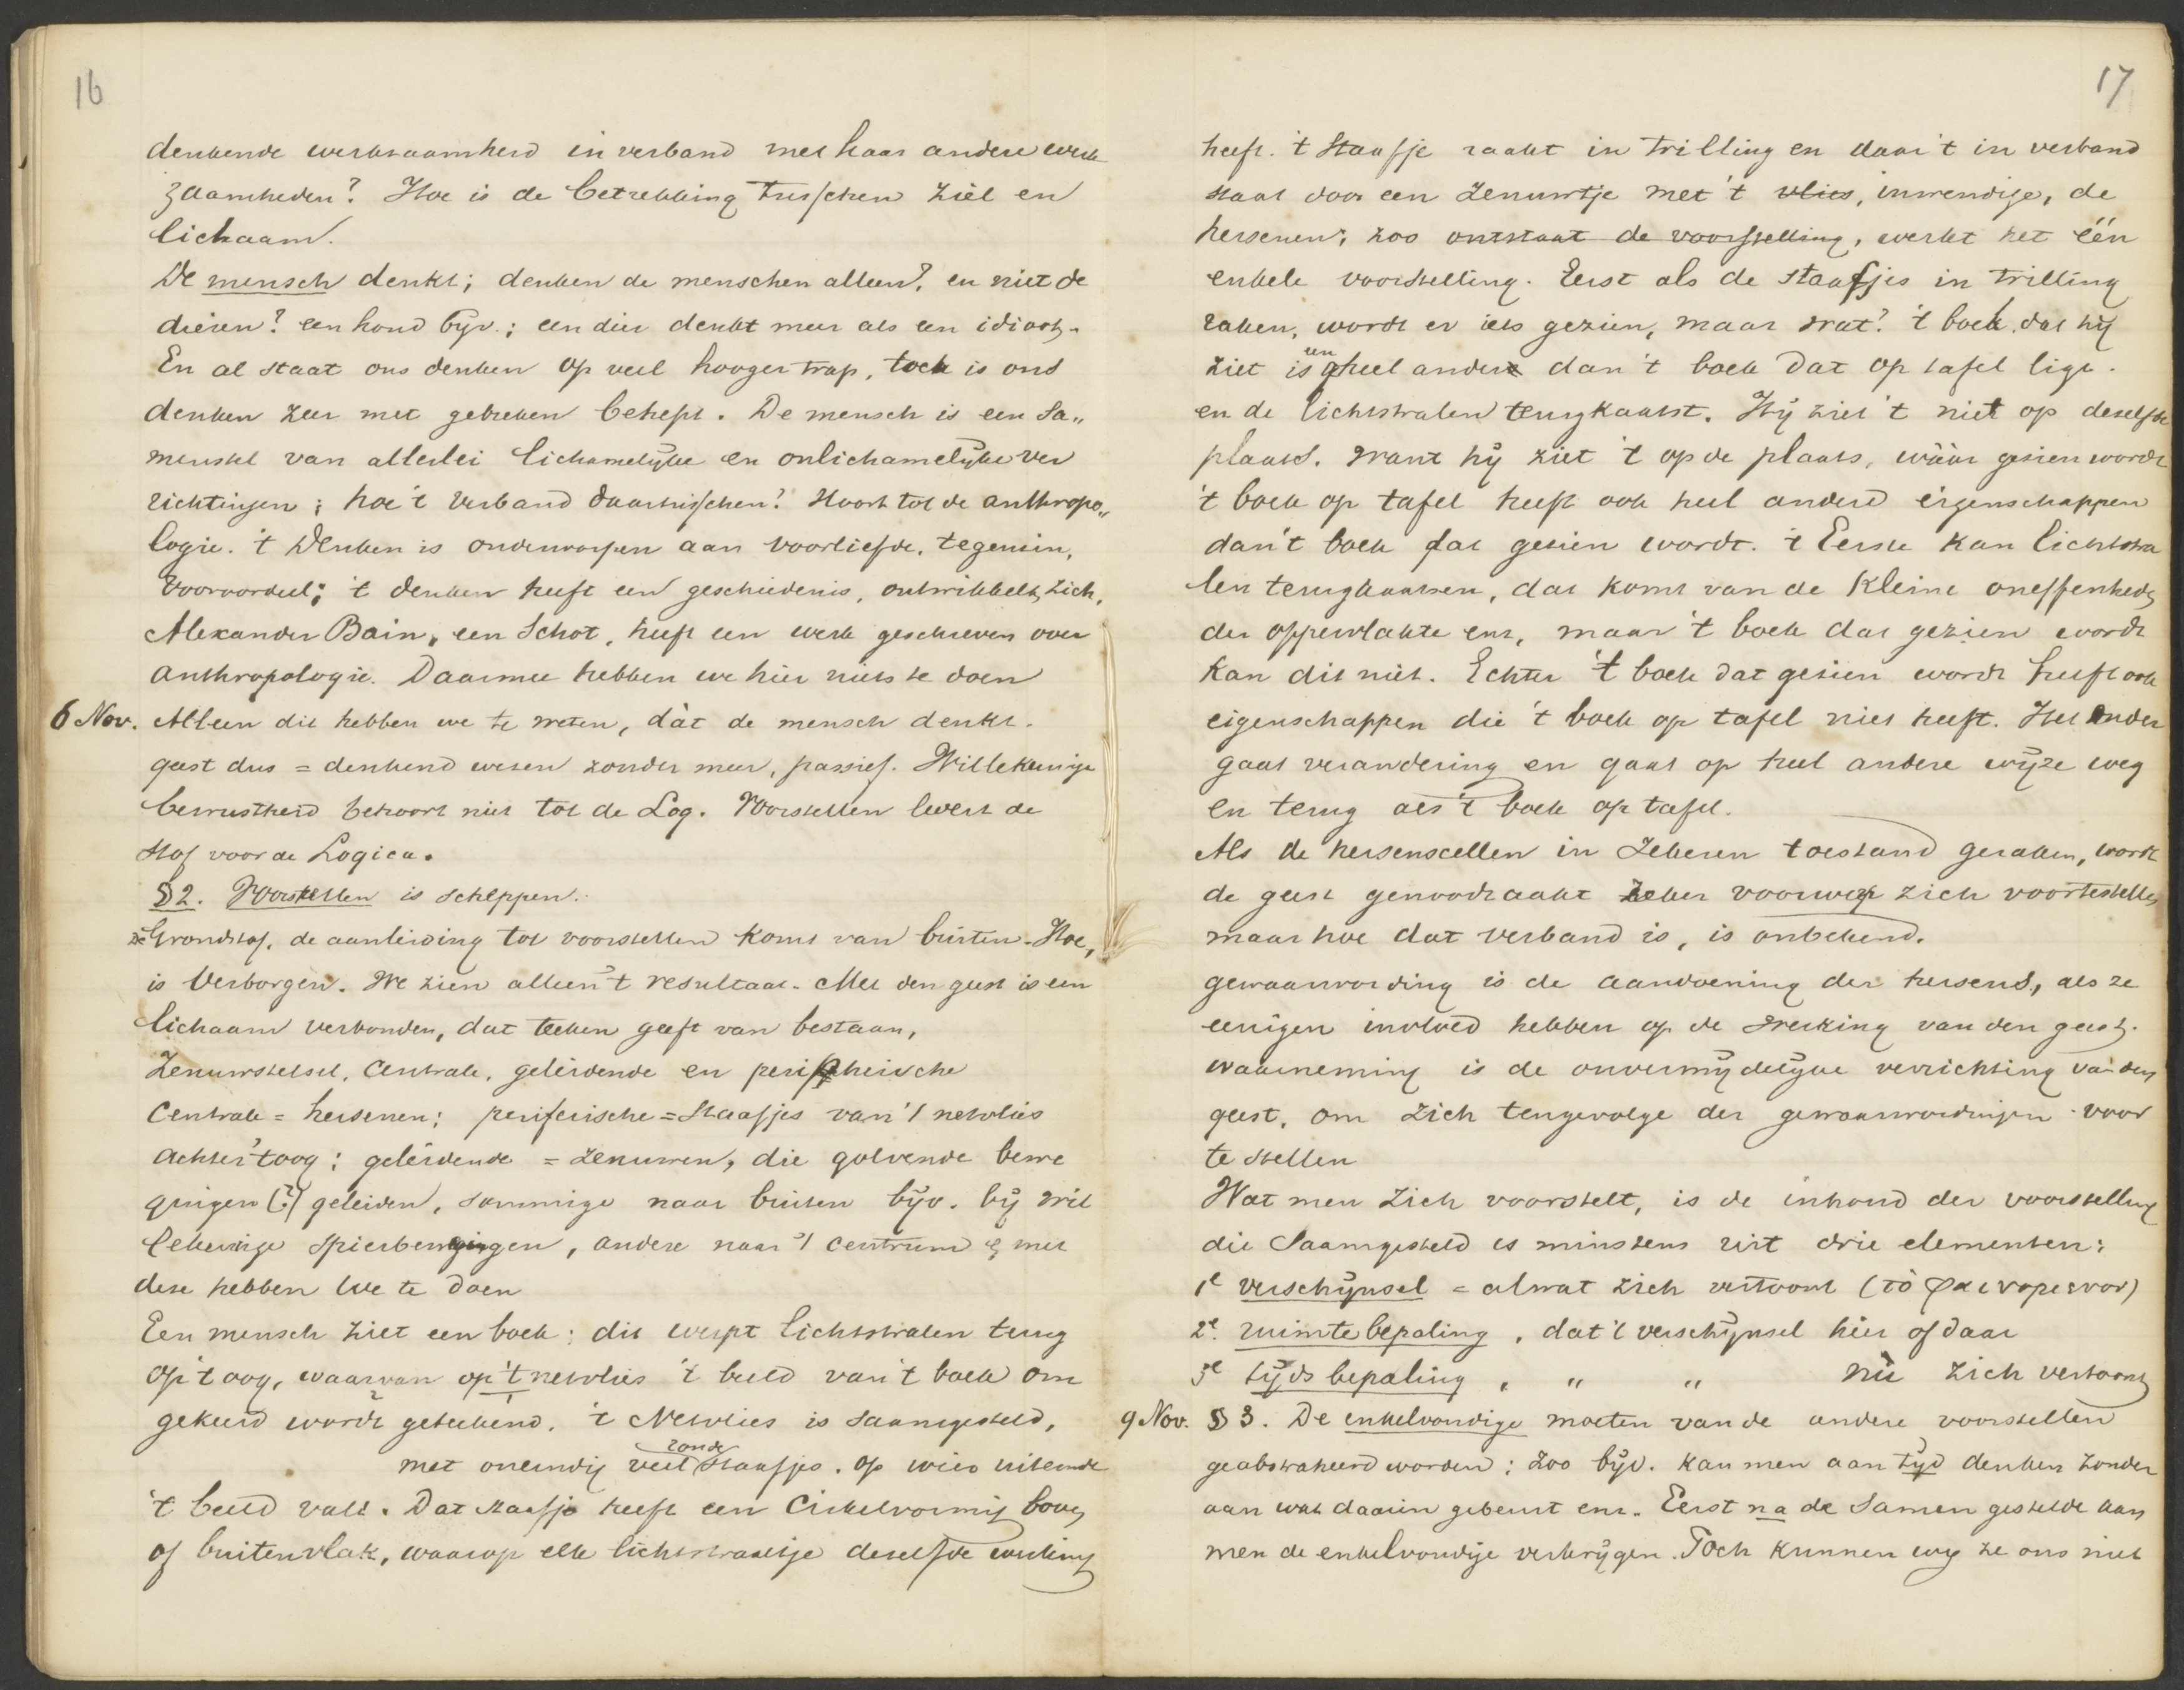 16
denkende werkzaamheid in verband met haar andere werk
zaamheden? Hoe is de betrekking tusschen ziel en
lichaam.
De mensch denkt; denken de menschen alleen? en niet de
dieren? een hond bijv.; een dier denkt meer als een idioot.
En al staat ons denken op veel hooger trap, toch is ons
denken zeer met gebreken behept. De mensch is een sa„
menstel van allerlei lichamelijke en onlichamelijke ver
richtingen; hoe 't verband daartusschen? Hoort tot de anthropo„
logie. 't Denken is onderworpen aan voorliefde, tegenzin,
vooroordeel; 't denken heeft een geschiedenis, ontwikkelt zich.
Alexander Bain, een Schot, heeft een werk geschreven over
anthropologie. Daarmee hebben we hier niets te doen
6 Nov. Alleen dit hebben we te weten, dàt de mensch denkt.
geest dus = denkend wezen zonder meer, passief. Willekeurige
bewustheid behoort niet tot de Log. Voorstellen levert de
stof voor de Logica.
§2. Voorstellen is scheppen.
De Grondstof, de aanleiding tot voorstellen komt van buiten. Hoe,
is verborgen. We zien alleen 't resultaat. Met den geest is een
lichaam verbonden, dat teeken geeft van bestaan,
Zenuwstelsel, centrale, geleidende en peripherische
Centrale = hersenen; periferische = staafjes van 't netvlies
achter 't oog; geleidende = zenuwen, die golvende bewe
gingen (?) geleiden, sommige naar buiten bijv. bij wil
lekeurige spierbewegingen, andere naar 't centrum & met
deze hebben we te doen
Een mensch ziet een boek: dit werpt lichtstralen terug
op 't oog, waarvan op 't netvlies 't beeld van 't boek om
gekeerd wordt geteekend. 't Netvlies is saamgesteld,
ronde
met oneindig veel staafjes. op wier uiteinde
't beeld valt. Dat staafje heeft een cirkelvormig boven
of buitenvlak, waarop elk lichtstraaltje dezelfde werking
17
heeft. 't Staafje raakt in trilling en daar 't in verband
staat door een zenuwtje met 't vlies, inwendige, de
hersenen; zoo ontstaat de voorstelling, werkt het één
enkele voorstelling. Eerst als de staafjes in trilling
raken, wordt er iets gezien, maar wat? 't boek, dat hij
een
ziet is geheel ander dan 't boek dat op tafel ligt.
en de lichtstralen terugkaatst. Hij ziet 't niet op dezelfde
plaats. want hij ziet 't op de plaats, wààr gezien wordt
't boek op tafel heeft ook heel andere eigenschappen
dan 't boek dat gezien wordt. 't Eerste kan lichtstra
len terugkaatsen, dat komt van de kleine oneffenheden
der oppervlakte enz, maar 't boek dat gezien wordt
kan dit niet. Echter 't boek dat gezien wordt heeft ook
eigenschappen die 't boek op tafel niet heeft. Het onder
gaat verandering en gaat op heel andere wijze weg
en terug als 't boek op tafel.
Als de hersenscellen in zekeren toestand geraken, wordt
de geest genoodzaakt zeker voorwerp zich voor te stellen
maar hoe dat verband is, is onbekend.
gewaarwording is de aandoening der hersens, als ze
eenigen invloed hebben op de werking van den geest.
waarneming is de onvermijdelijke verrichting van den
geest, om zich tengevolge der gewaarwordingen voor
te stellen
Wat men zich voorstelt, is de inhoud der voorstelling
die saamgesteld is minstens uit drie elementen:
1e verschijnsel = alwat zich vertoont (τὸ φαινομενον)
2e. ruimtebepaling, dat 't verschijnsel hier of daar
3e tijdsbepaling, " " nù zich vertoont
9 Nov. § 3. De enkelvoudige moeten van de andere voorstellen
geabstraheerd worden; zoo bijv. kan men aan tijd denken zonder
aan wat daarin gebeurt enz. Eerst na de samengestelde kan
men de enkelvoudige verkrijgen. Toch kunnen wij ze ons niet